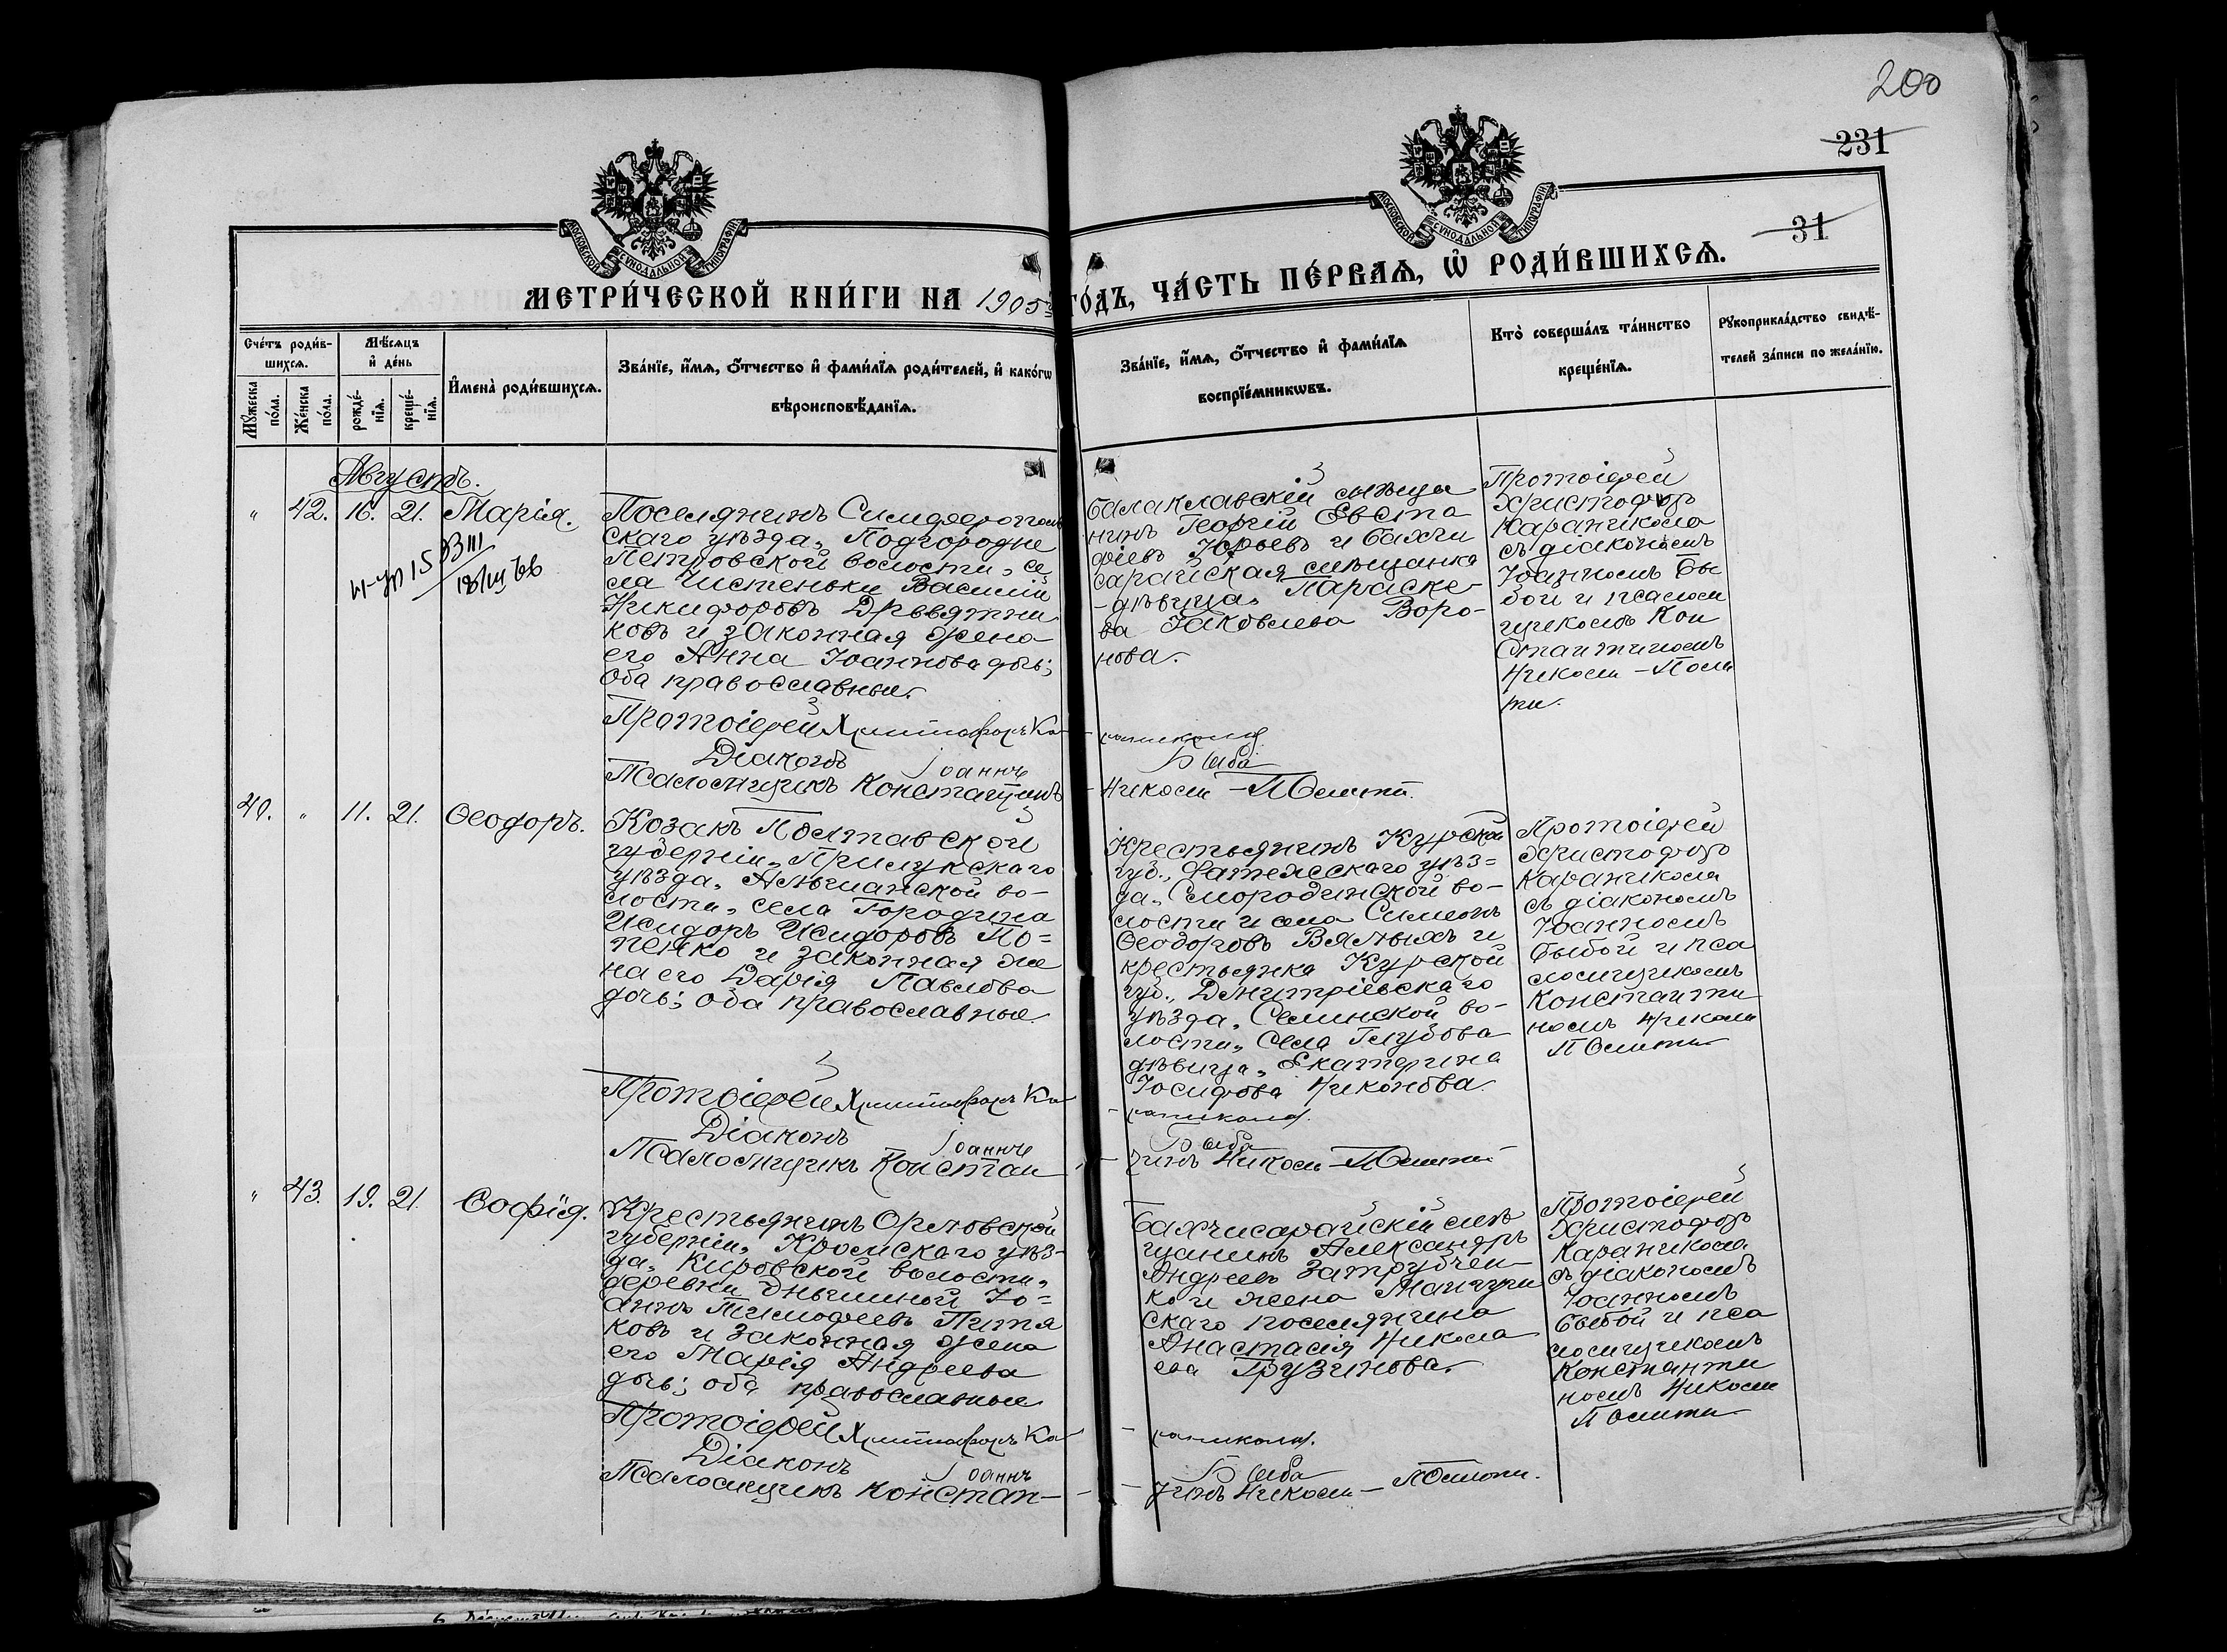 200
231
31
МОСКОВСКОЙ СУНОДАЛЬНОЙ ТИПОГРАФІИ
МОСКОВСКОЙ СУНОДАЛЬНОЙ ТИПОГРАФІИ
МЕТРИ́ЧЕСКОЙ КНИ́ГИ НА 1905 й ГО́ДЪ, ЧА́СТЬ ПЕ́РВАѦ, Ѡ҆ РОДИ́ВШИХСѦ.
Сче́тъ роди́в-
шихсѧ.
Мꙋ́жеска
по́ла.
Же́нска
по́ла.
Мѣ́сѧцъ
и҆ де́нь
рожде́-
нїѧ.
креще́-
нїѧ.
И҆мена̀ роди́вшихсѧ.
Зва́нїе, и҆́мѧ, ѻ҆́тчество и҆ фами́лїѧ роди́телей, и҆ како́гѡ
вѣроисповѣ́данїѧ.
Зва́нїе, и҆́мѧ, ѻ҆́тчество и҆ фами́лїѧ
воспрїе́мникѡвъ.
Кто̀ соверша́лъ та́инство
креще́нїѧ.
Рꙋкоприкла́дство свидѣ́-
телей за́писи по жела́нїю.
Августъ.
" 42. 16. 21. Марія.
Поселянинъ Симферополь
скаго уѣзда, Подгородне
Петровской волости, се
ла Чистеньки Василій
Никифоровъ Древятни
ковъ и законная жена
его Анна Іоаннова дочь;
оба православные.
Балаклавскій мѣща
нинъ Георгій Евста
фіевъ Юрьевъ и Бахчи
сарайская мѣщанка
-дѣвица, Параске-
ва Іаковлева Воро-
нова.
Протоіерей
Христофоръ
Караникола
съ діакономъ
Іоанномъ Бы
бой и псалом
щикомъ Кон
стантиномъ
Николи-Поли
ти.
Протоіерей Христофоръ Ка-
-раникола.
Діаконъ Іоаннъ Быба
Псаломщикъ Константинъ
-Николи-Полити.
40. " 11. 21. Ѳеодоръ.
Козакъ Полтавской
губерніи, Прилукскаго
уѣзда, волости, села Городина
Исидоръ Исидоровъ По=
пенко и законная же
на его Дарія Павлова
дочь; оба православные.
Крестьянинъ Курской
губ., Фатежскаго уѣз=
да, Смородинской во-
лости и села Симеонъ
Ѳеодоровъ Вялыхъ и
крестьянка Курской
губ., Дмитріевскаго
уѣзда, Селинской во-
лости, села Глубова
дѣвица, Екатерина
Іосифова Никонова.
Протоіерей
Христофоръ
Караникола
съ діакономъ
Іоанномъ
Быбой и пса
ломщикомъ
Константи
номъ Николи
Политы
Протоіерей Христофоръ Ка-
-раникола.
Діаконъ Іоаннъ Быба
Псаломщикъ Констан-
-тинъ Николи-Политы
" 43. 19. 21. Софія.
Крестьянинъ Орловской
губерніи, Кромскаго уѣз-
да, Кировской волости,
деревни Іо=
аннъ Тимофеевъ Питя
ковъ и законная жена
его Марія Андреева
дочь; оба православные.
Бахчисарайскій мѣ
щанинъ Александръ
Андреевъ Затрубчен
ко и жена Мангуш
скаго поселянина
Анастасія Никола
ева Грузинова.
Протоіерей
Христофоръ
Караникола
съ діакономъ
Іоанномъ
Быбой и пса
ломщикомъ
Константи
номъ Николи
Политы
Протоіерей Христофоръ Ка-
-раникола.
Діаконъ Іоаннъ Быба
Псаломщикъ Констан-
-тинъ Николи-Политы.